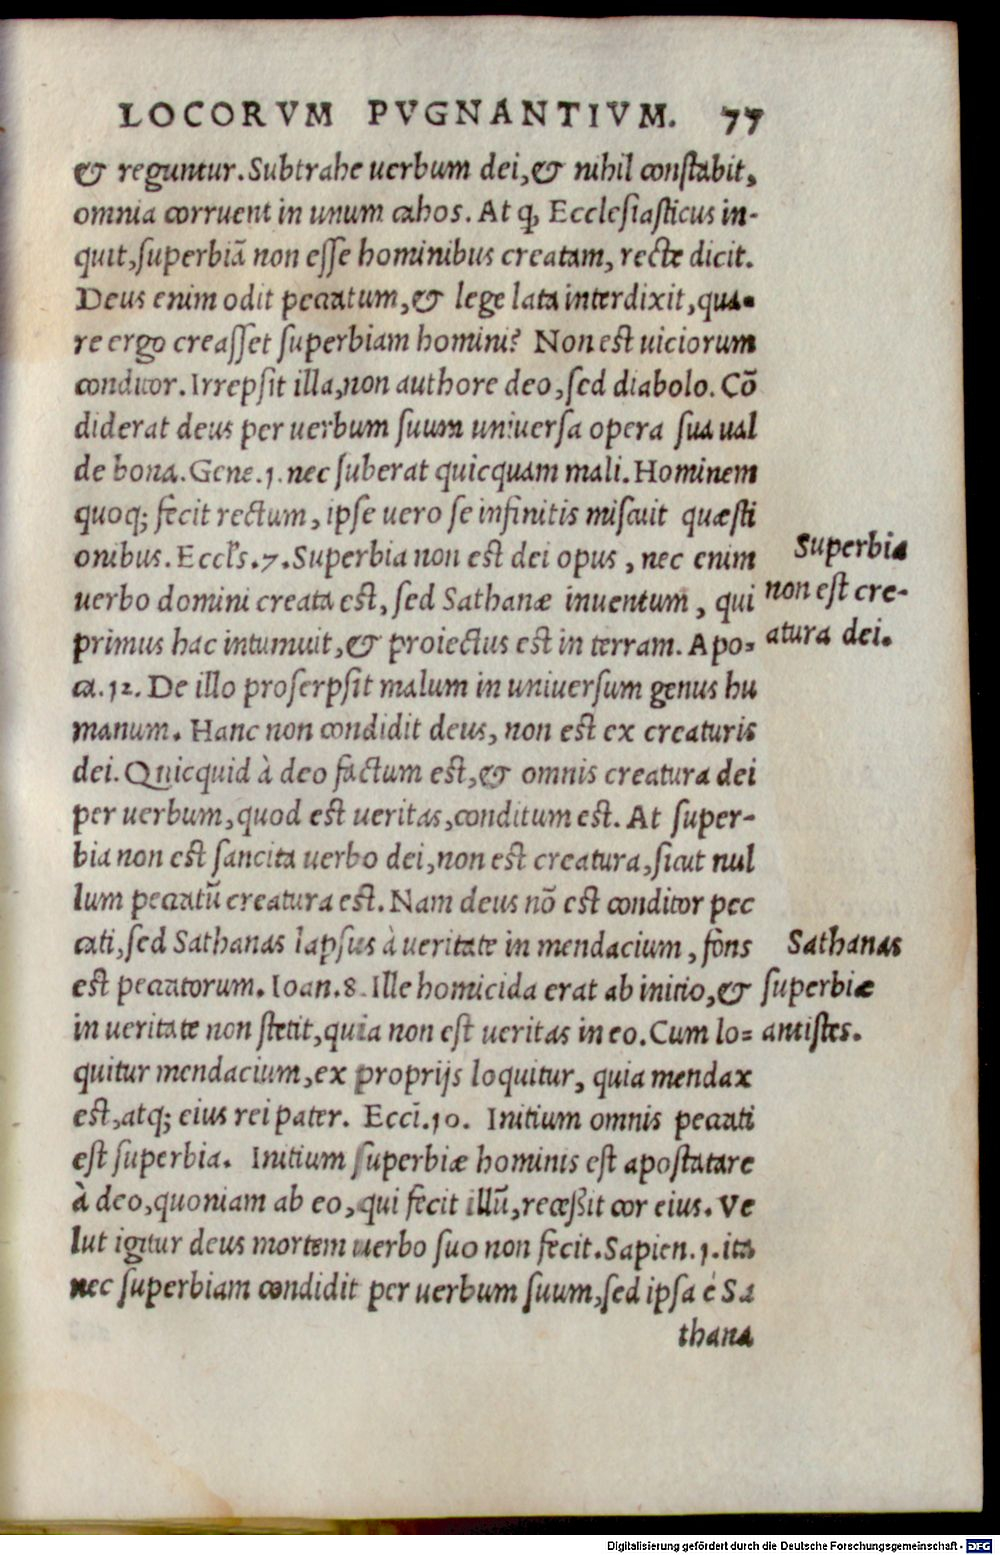 LOCORVM PVGNANTIVM. 77
& reguntur. Subtrahe uerbum dei, & nihil conſtabit,
omnia corruent in unum cahos. At ꝙ Eccleſiaſticus in-
quit, ſuperbiā non eſſe hominibus creatam, recte dicit.
Deus enim odit peccatum, & lege lata interdixit, qua-
re ergo creaſſet ſuperbiam homini? Non eſt uiciorum
conditor. Irrepſit illa, non authore deo, ſed diabolo. Cō
diderat deus per uerbum ſuum uniuerſa opera ſua ual
de bona. Gene. 1. nec ſuberat quicquam mali. Hominem
quoq; fecit rectum, ipſe uero ſe infinitis miſcuit quæſti
onibus. Eccl's. 7. Superbia non eſt dei opus, nec enim
uerbo domini creata eſt, ſed Sathanæ inuentum, qui
primus hac intumuit, & proiectus eſt in terram. Apo=
ca. 12. De illo proſerpſit malum in uniuerſum genus hu
manum. Hanc non condidit deus, non eſt ex creaturis
dei. Quicquid à deo factum eſt, & omnis creatura dei
per uerbum, quod eſt ueritas, conditum eſt. At ſuper-
bia non eſt ſancita uerbo dei, non eſt creatura, ſicut nul
lum peccatū creatura eſt. Nam deus nō eſt conditor pec
cati, ſed Sathanas lapſus à ueritate in mendacium, fons
eſt peccatorum. Ioan. 8. Ille homicida erat ab initio, &
in ueritate non ſtetit, quia non eſt ueritas in eo. Cum lo=
quitur mendacium, ex proprijs loquitur, quia mendax
eſt, atq; eius rei pater. Eccī. 10. Initium omnis peccati
eſt ſuperbia. Initium ſuperbiæ hominis eſt apoſtatare
à deo, quoniam ab eo, qui fecit illū, receßit cor eius. Ve
lut igitur deus mortem uerbo ſuo non fecit. Sapien. 1. ita
nec ſuperbiam condidit per uerbum ſuum, ſed ipſa è Sa
thana
Superbia
non eſt cre-
atura dei.
Sathanas
ſuperbiæ
antiſtes.
Digitalisierung gefördert durch die Deutsche Forschungsgemeinschaft - DFG